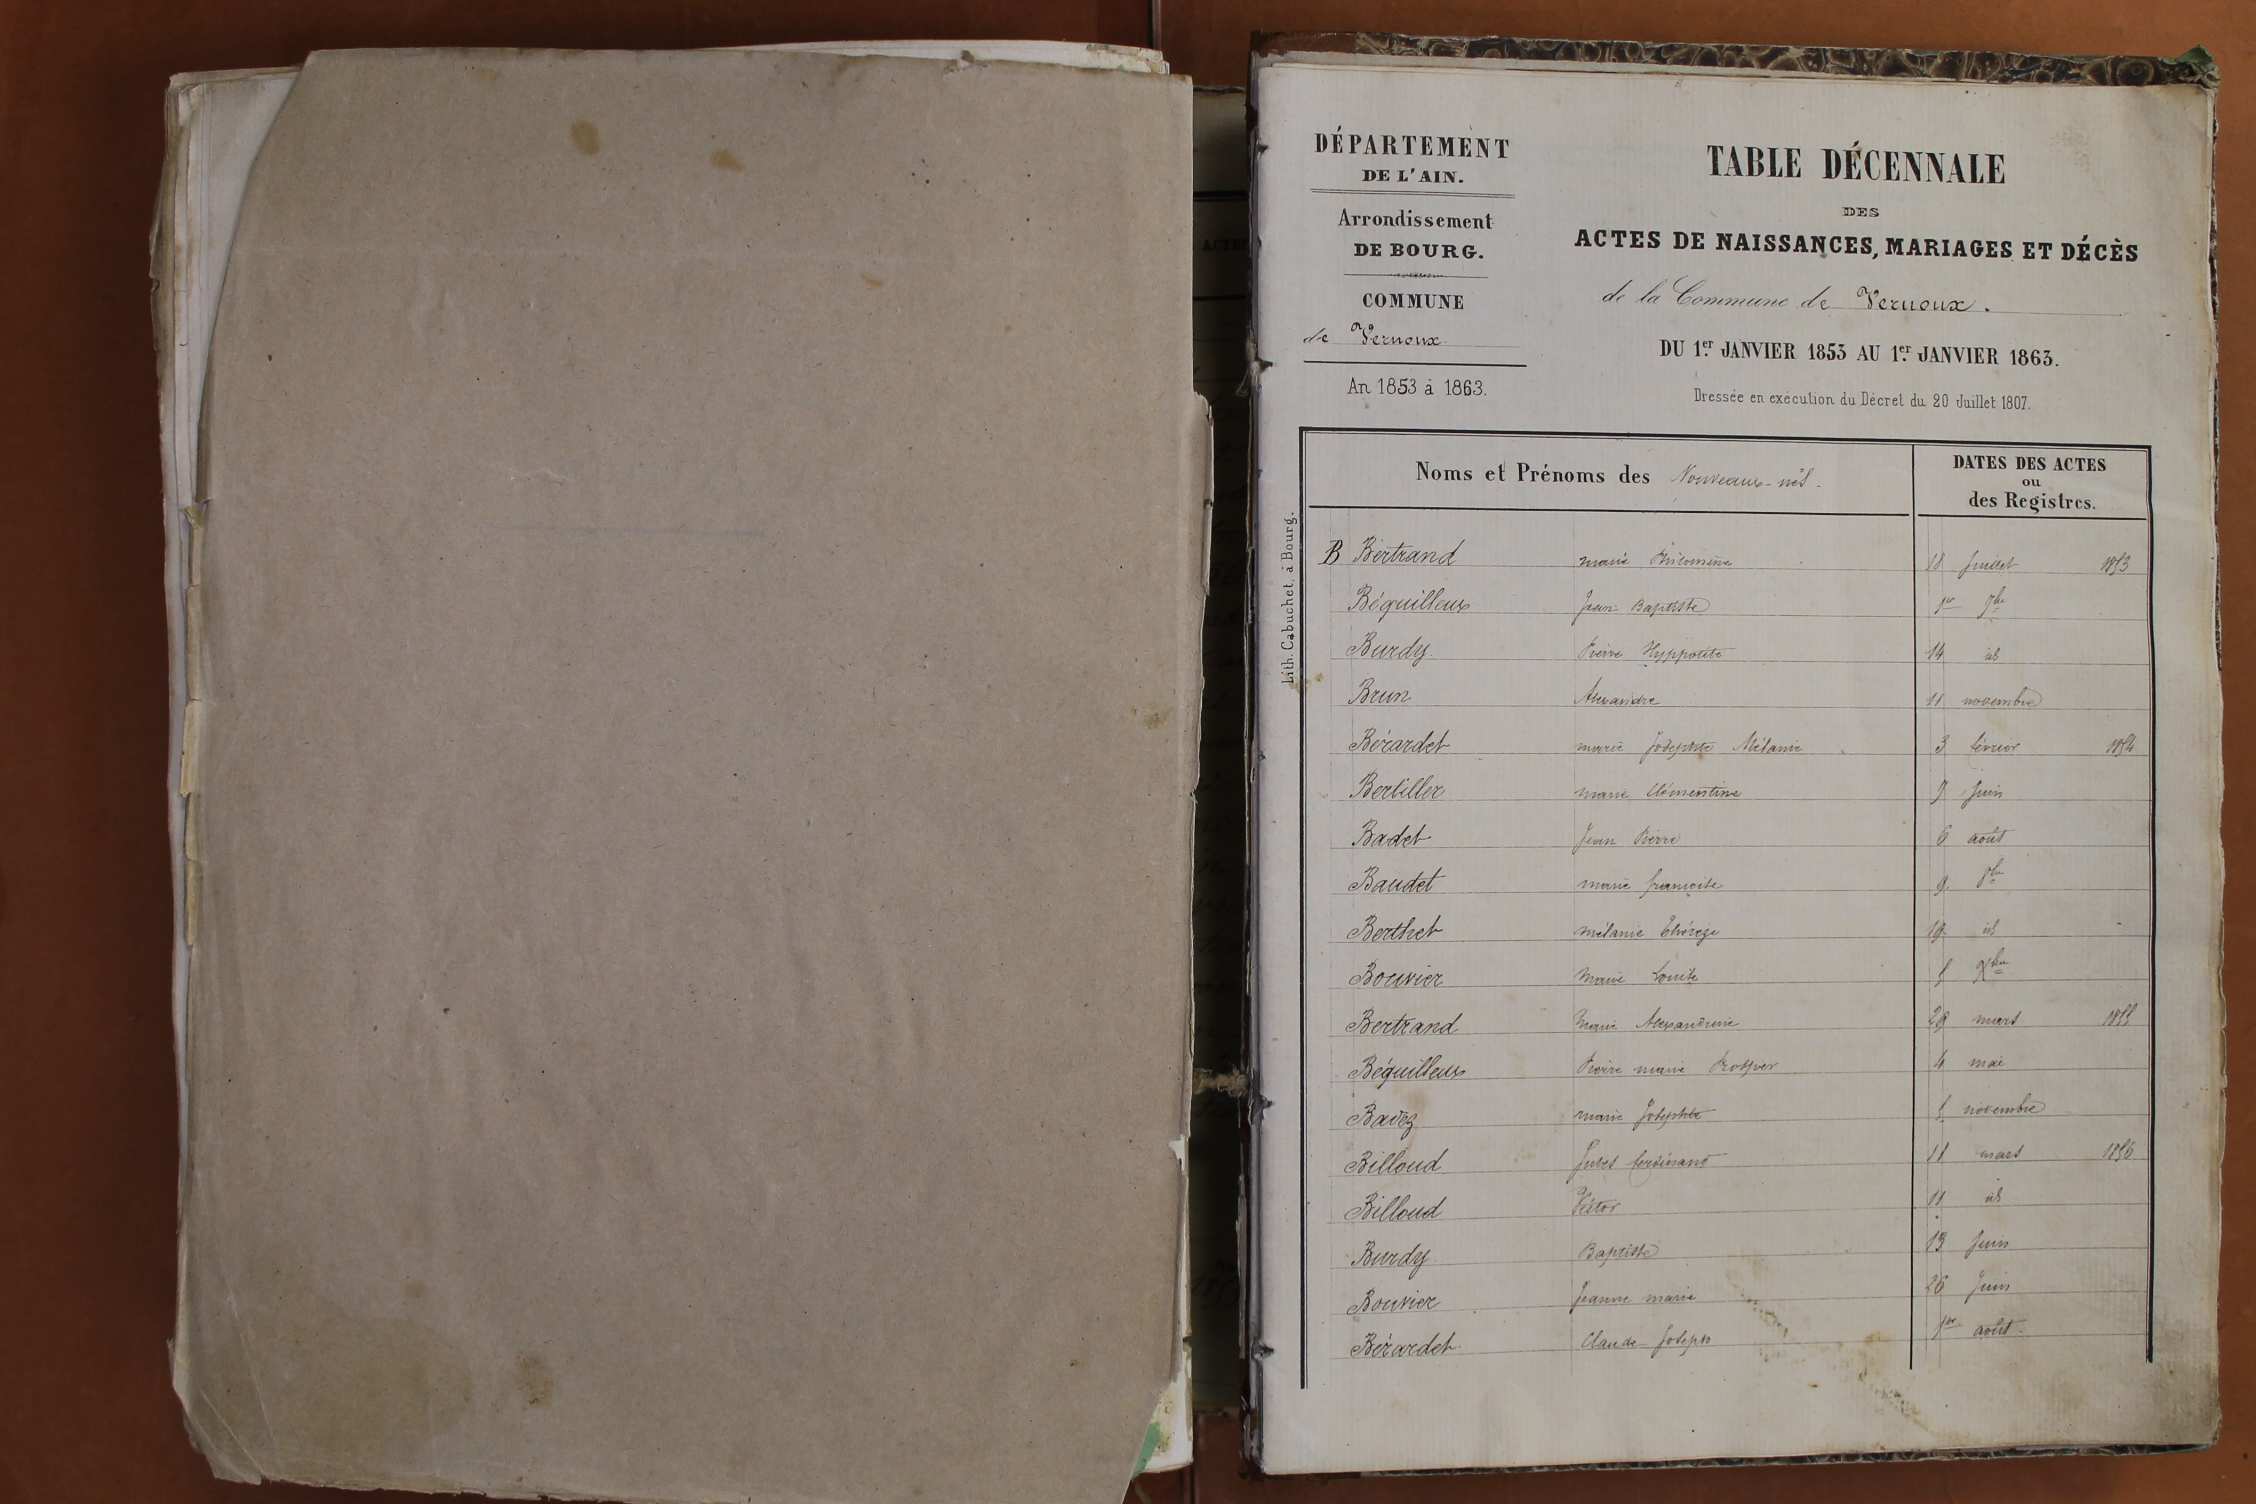 DÉPARTEMENT
DE L'AIN.
Arrondissement
DE BOURG.
COMMUNE
de Vernoux
An 1853 à 1863.
TABLE DÉCENNALE
DES
ACTES DE NAISSANCES, MARIAGES ET DÉCÈS
de la Commune de Vernoux.
DU 1er JANVIER 1853 AU 1er JANVIER 1863.
Dressée en exécution du Décret du 20 Juillet 1807.
Lith. Cabuchet, à Bourg.
Noms et Prénoms des Nouveaux-nés.
DATES DES ACTES
ou
des Registres.
B Bertrand marie Philomène 18 Juillet 1853
Béguilleux Jean Baptiste 1er 7bre
Burdy Pierre Hyppolite 14 id
Brun Alexandre 11 novembre
Bérardet marie Josephte Mélanie 3 février 1854
Bertiller marie Clémentine 9 Juin
Badet Jean Pierre 6 août
Baudet marie françoise 9 8bre
Berthet mélanie Thérèze 19 id
Bouvier Marie Louise 8 Xbre
Bertrand Marie Alexandrine 29 mars 1855
Béguilleux Pierre marie Prosper 4 mai
Badez marie Josephte novembre
Billoud Jules ferdinand 11 mars 1856
Billoud Victor 11 id
Burdy Baptiste 13 Juin
Bouvier Jeanne marie 26 Juin
Bérardet Claude Joseph 1er août.